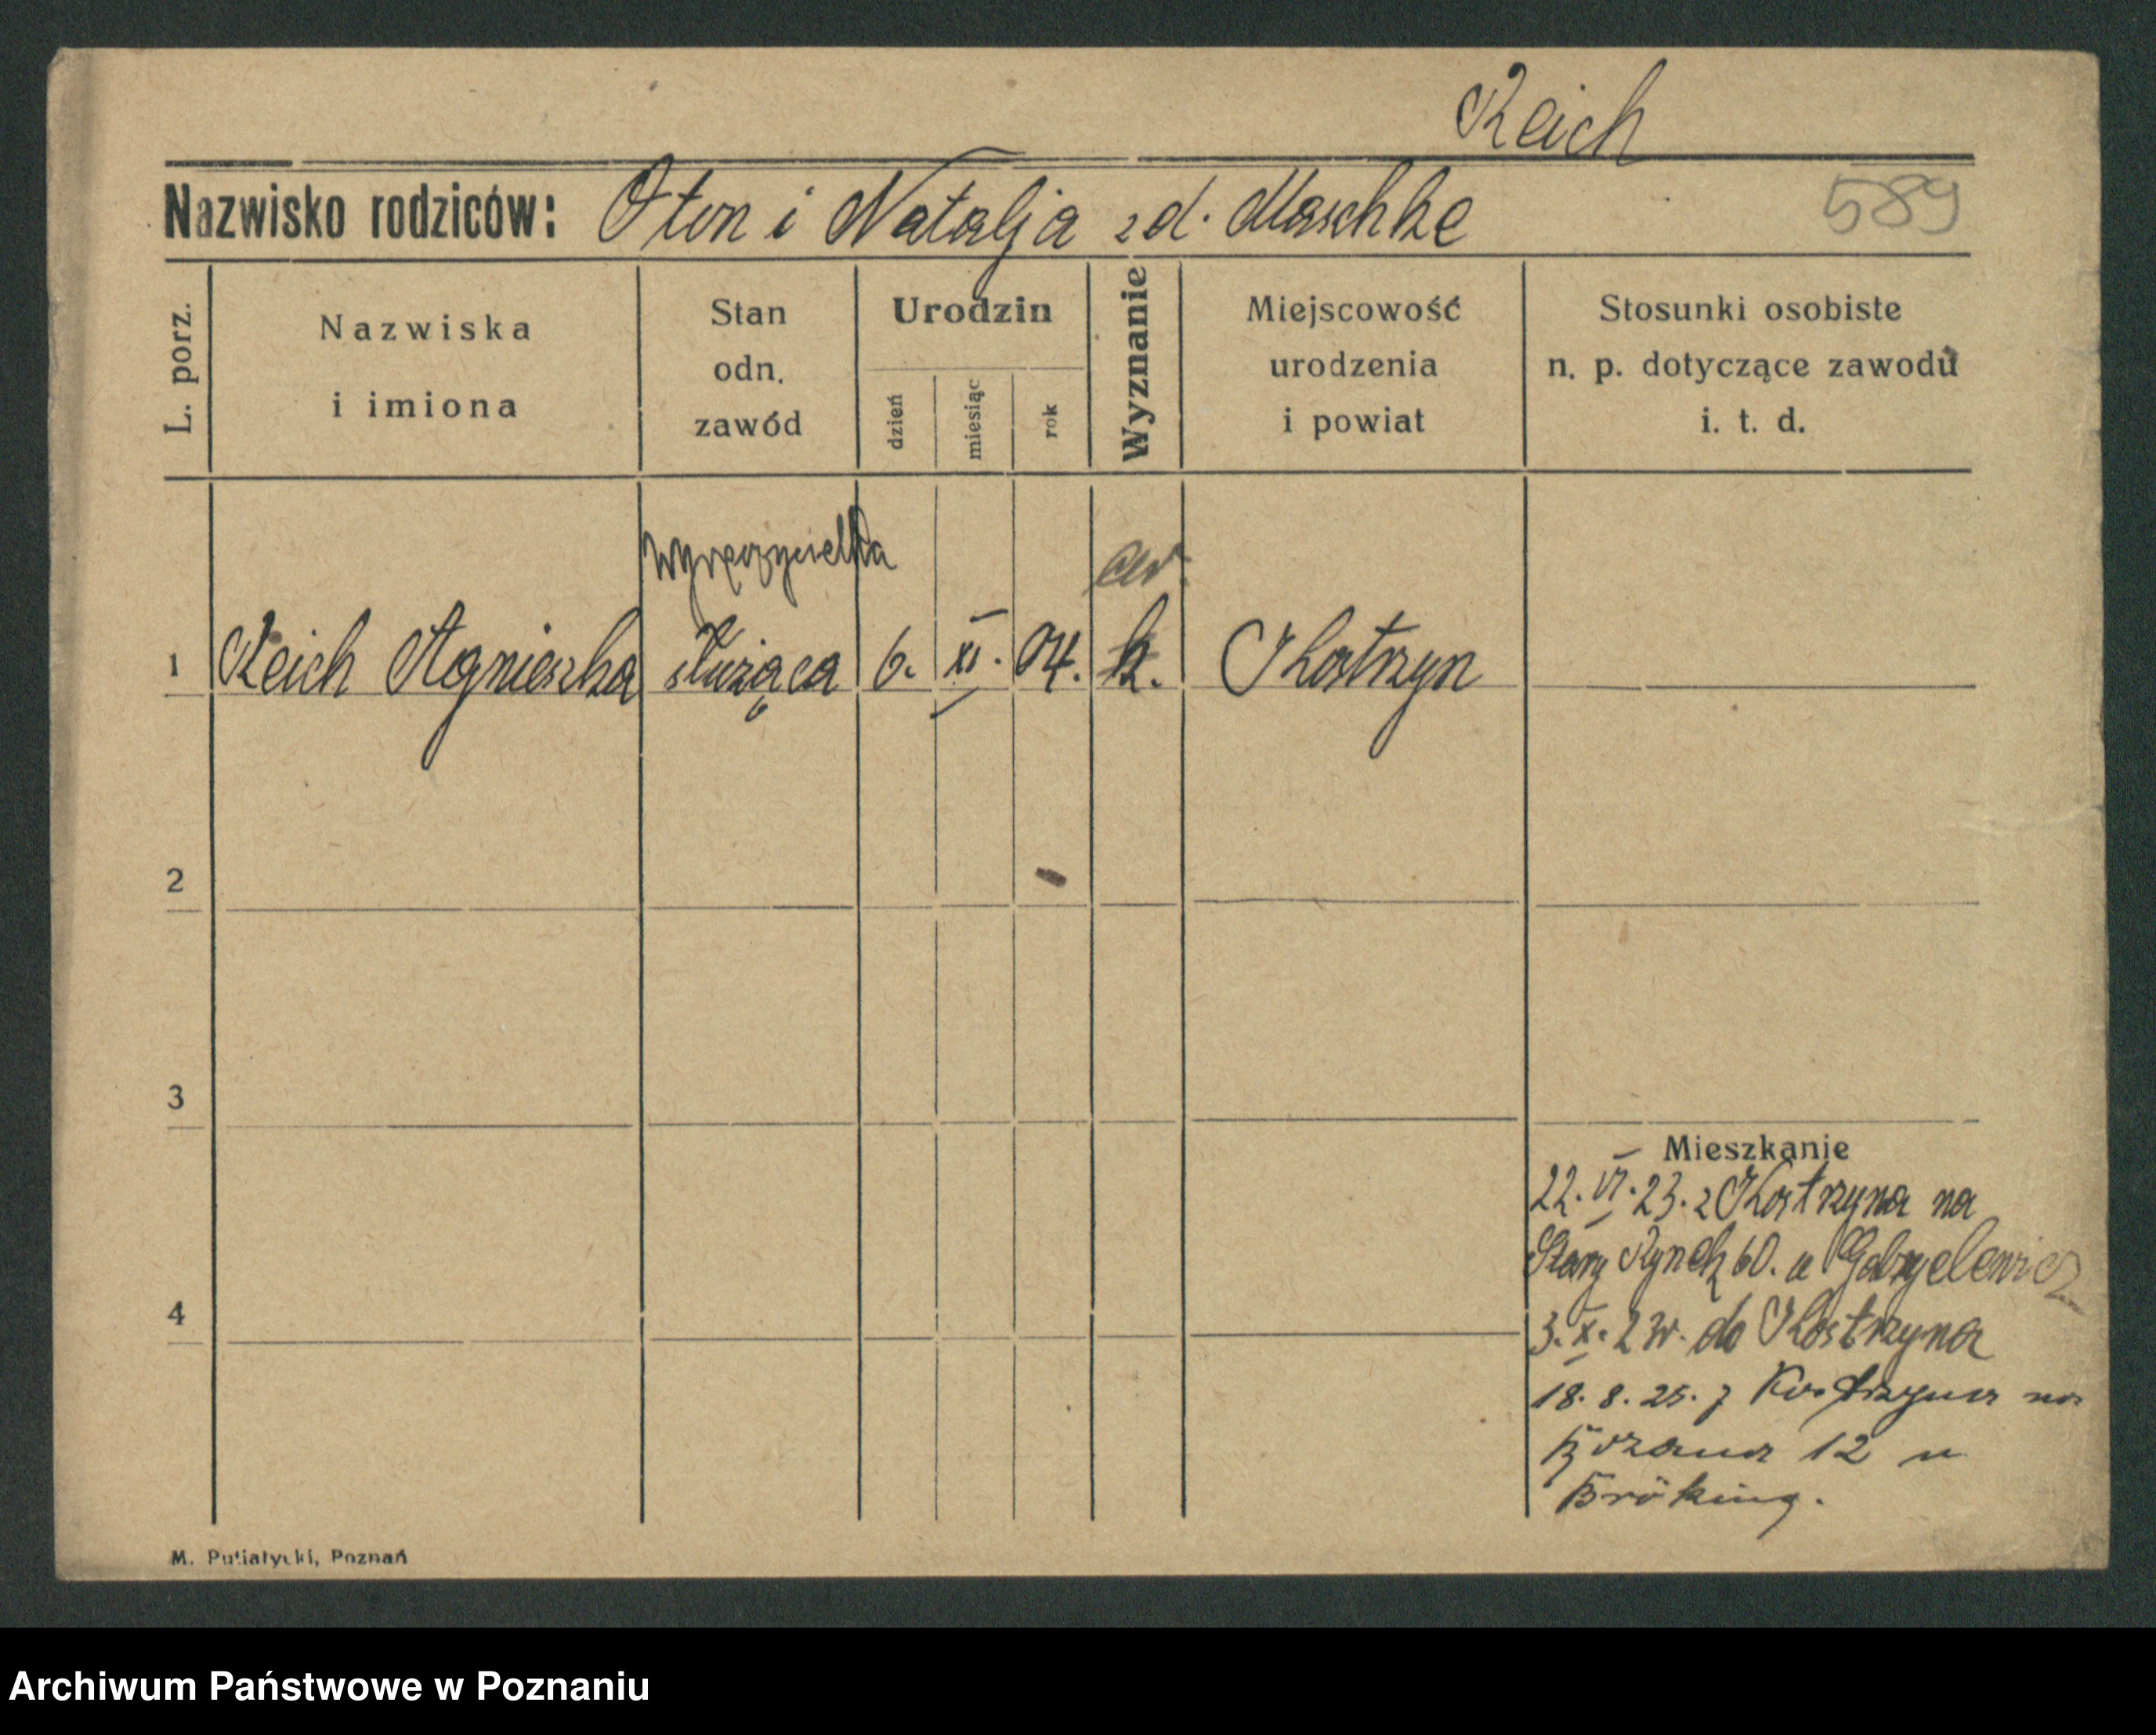 Reich
Nazwisko rodziców: Oton i Natalja zd. Maschke
589
L. porz.
Nazwiska
i imiona
Stan
odn.
zawód
Urodzin
dzień
miesiąc
rok
Wyznanie
Miejscowość
urodzenia
i powiat
Stosunki osobiste
n. p. dotyczące zawodu
i. t. d.
ew.
1 Reich Agnieszka służąca 6. XI. 04. k. Kostrzyn
2
3
4
Mieszkanie
22. VI. 23. z Kostrzyna na
Stary Rynek 60. u Gabryelewicz
3. X. 23r. do Kostrzyna
18. 8. 25. z Kostrzyna na
Różana 12 u
Bröking.
M. Putiatycki, Poznań
Archiwum Państwowe w Poznaniu